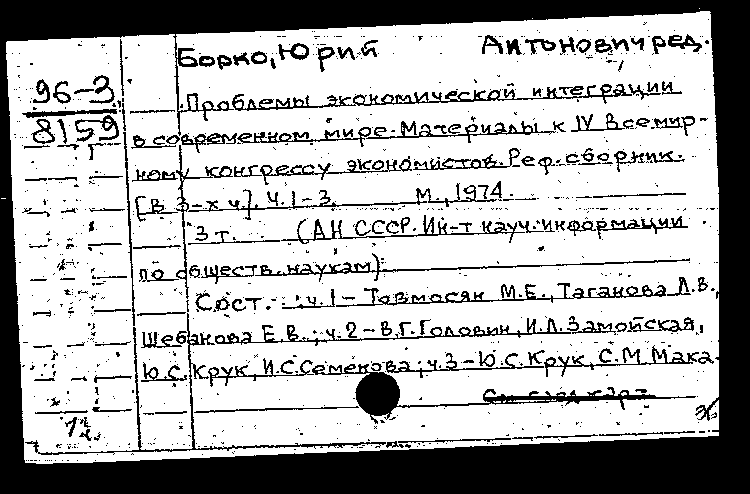 Борко, Юрий Антонович ред.
96-3
8159
Проблемы экономической интеграции
в современном мире. Материалы к IV Всемир-
ному конгрессу экономистов. Реф. сборник.
[В 3-х ч]. Ч. 1-3. М., 1974.
3 т. (АН СССР. Ин-т науч. информации
по обществ. наукам).
Сост.: ч. 1 - Товмосян М.Е., Таганова Л.В.,
Шебанова Е.В.; ч. 2 - В.Г. Головин, И.Л. Замойская,
Ю.С. Крук, И.С. Семенова; ч. 3 - Ю.С. Крук, С.М. Мака-
См след карт